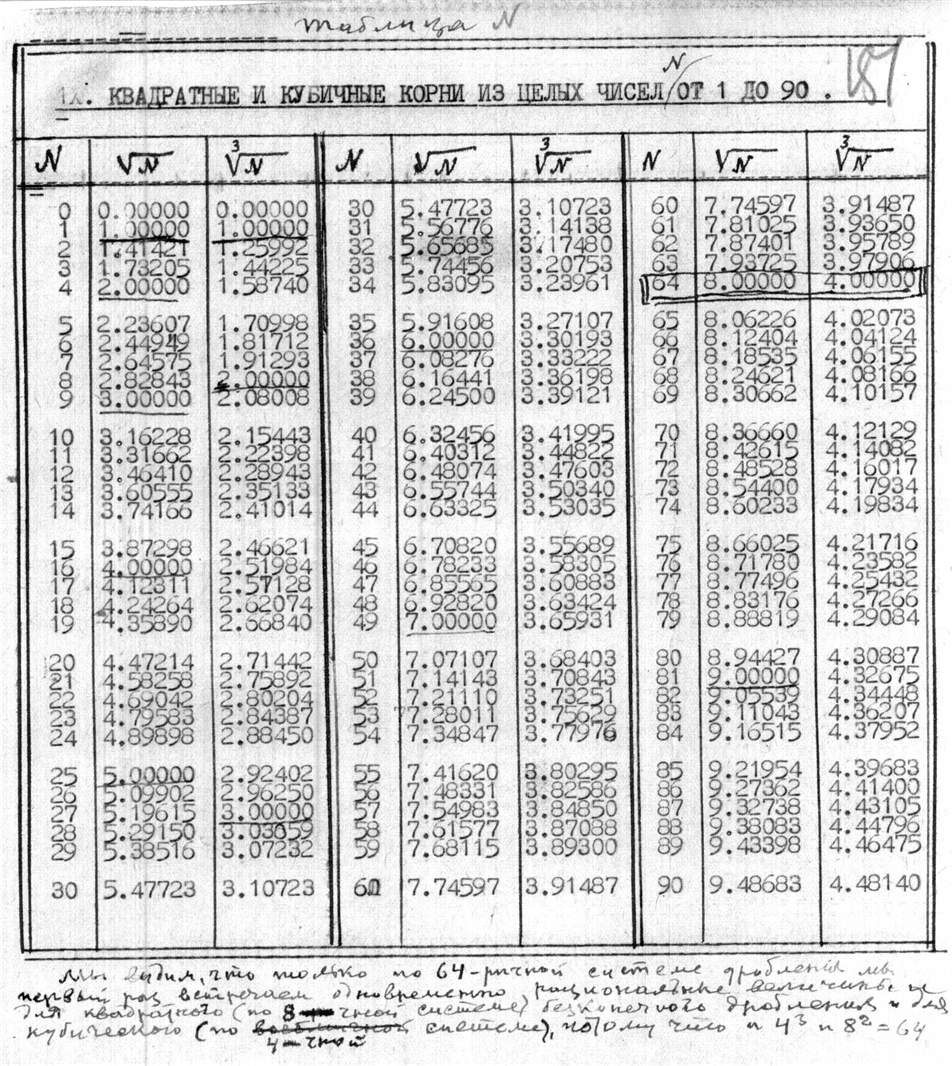 Таблица N
187
IX. КВАДРАТНЫЕ И КУБИЧНЫЕ КОРНИ ИЗ ЦЕЛЫХ ЧИСЕЛ N ОТ 1 ДО 90 .
N √N ∛N N √N ∛N N √N ∛N
0 0.00000 0.00000 30 5.47723 3.10723 60 7.74597 3.91487
1 1.00000 1.00000 31 5.56776 3.14138 61 7.81025 3.93650
2 1.41421 1.25992 32 5.65685 3.17480 62 7.87401 3.95789
3 1.73205 1.44225 33 5.74456 3.20753 63 7.93725 3.97906
4 2.00000 1.58740 34 5.83095 3.23961 64 8.00000 4.00000
5 2.23607 1.70998 35 5.91608 3.27107 65 8.06226 4.02073
6 2.44949 1.81712 36 6.00000 3.30193 66 8.12404 4.04124
7 2.64575 1.91293 37 6.08276 3.33222 67 8.18535 4.06155
8 2.82843 2.00000 38 6.16441 3.36198 68 8.24621 4.08166
9 3.00000 2.08008 39 6.24500 3.39121 69 8.30662 4.10157
10 3.16228 2.15443 40 6.32456 3.41995 70 8.36660 4.12129
11 3.31662 2.22398 41 6.40312 3.44822 71 8.42615 4.14082
12 3.46410 2.28943 42 6.48074 3.47603 72 8.48528 4.16017
13 3.60555 2.35133 43 6.55744 3.50340 73 8.54400 4.17934
14 3.74166 2.41014 44 6.63325 3.53035 74 8.60233 4.19834
15 3.87298 2.46621 45 6.70820 3.55689 75 8.66025 4.21716
16 4.00000 2.51984 46 6.78233 3.58305 76 8.71780 4.23582
17 4.12311 2.57128 47 6.85565 3.60883 77 8.77496 4.25432
18 4.24264 2.62074 48 6.92820 3.63424 78 8.83176 4.27266
19 4.35890 2.66840 49 7.00000 3.65931 79 8.88819 4.29084
20 4.47214 2.71442 50 7.07107 3.68403 80 8.94427 4.30887
21 4.58258 2.75892 51 7.14143 3.70843 81 9.00000 4.32675
22 4.69042 2.80204 52 7.21110 3.73251 82 9.05539 4.34448
23 4.79583 2.84387 53 7.28011 3.75629 83 9.11043 4.36207
24 4.89898 2.88450 54 7.34847 3.77976 84 9.16515 4.37952
25 5.00000 2.92402 55 7.41620 3.80295 85 9.21954 4.39683
26 5.09902 2.96250 56 7.48331 3.82586 86 9.27362 4.41400
27 5.19615 3.00000 57 7.54983 3.84850 87 9.32738 4.43105
28 5.29150 3.03659 58 7.61577 3.87088 88 9.38083 4.44796
29 5.38516 3.07232 59 7.68115 3.89300 89 9.43398 4.46475
30 5.47723 3.10723 60 7.74597 3.91487 90 9.48683 4.48140
Мы видим, что только по 64-ричной системе дробления мы
первый раз встречаем одновременно рациональные величины и
для квадратного (по 8-чной системе) бесконечного дробления и для
кубического (по системе), потому что и 4³ и 8² = 64
4-чной